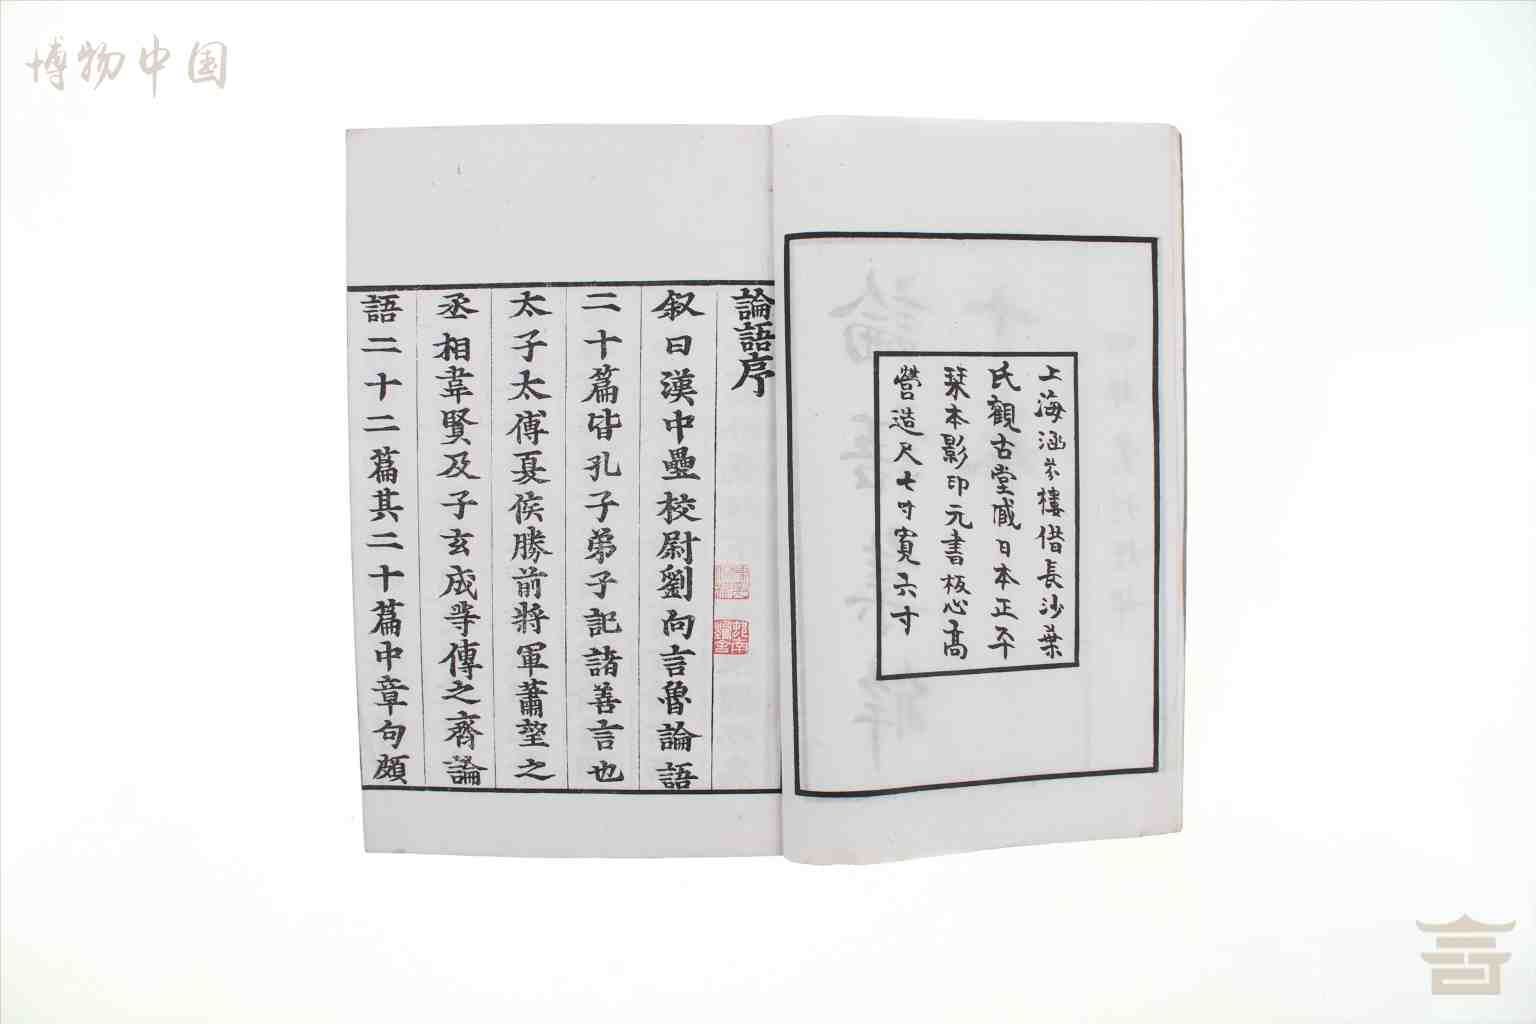 博物中国
上海涵芬樓借長沙葉
氏觀古堂臧日本正平
栞本影印元書板心高
營造尺七寸寬六寸
論語序
叙曰漢中壘校尉劉向言魯論語
二十篇皆孔子弟子記諸善言也
太子太傅夏侯勝前將軍蕭望之
丞相韋賢及子玄成等傳之齊論
語二十二篇其二十篇中章句頗